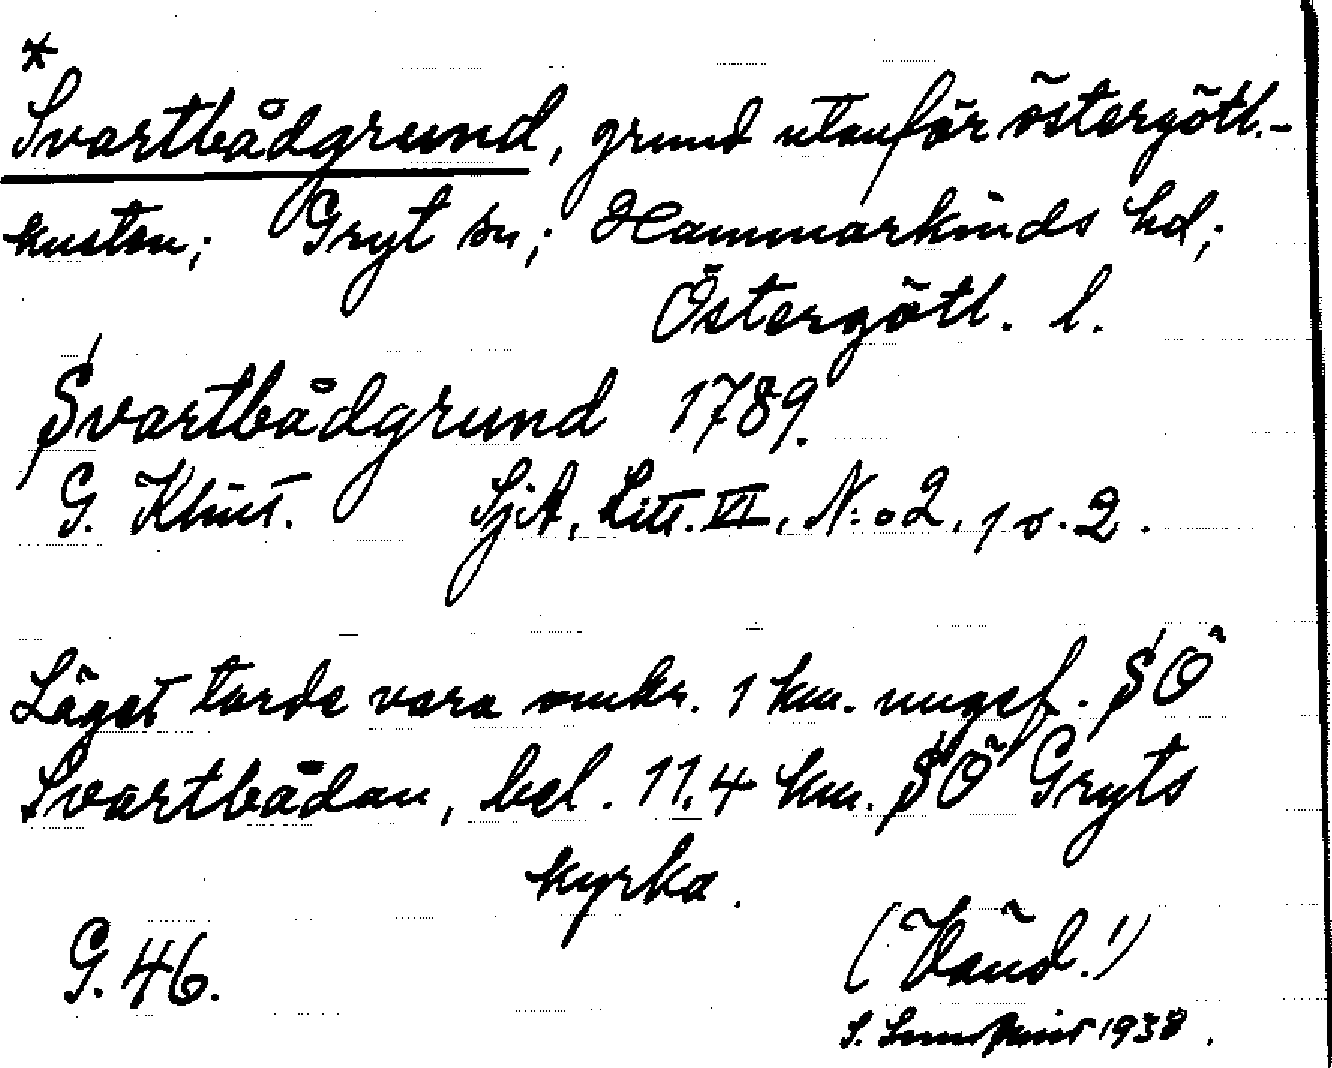 *
Svartbådgrund, grund utanför östergötl.-
kusten; Gryt sn; Hammarkinds hd;
Östergötl. l.
Svartbådgrund 1789.
G. Klint. SjA, Litt. VI, N:o 2, 1 o. 2.
Läget torde vara omkr. 1 km. ungef. SÖ
Svartbådan, bel. 11,4 km. SÖ Gryts
kyrka.
G. 46.
(Vänd!)
S. 1938.